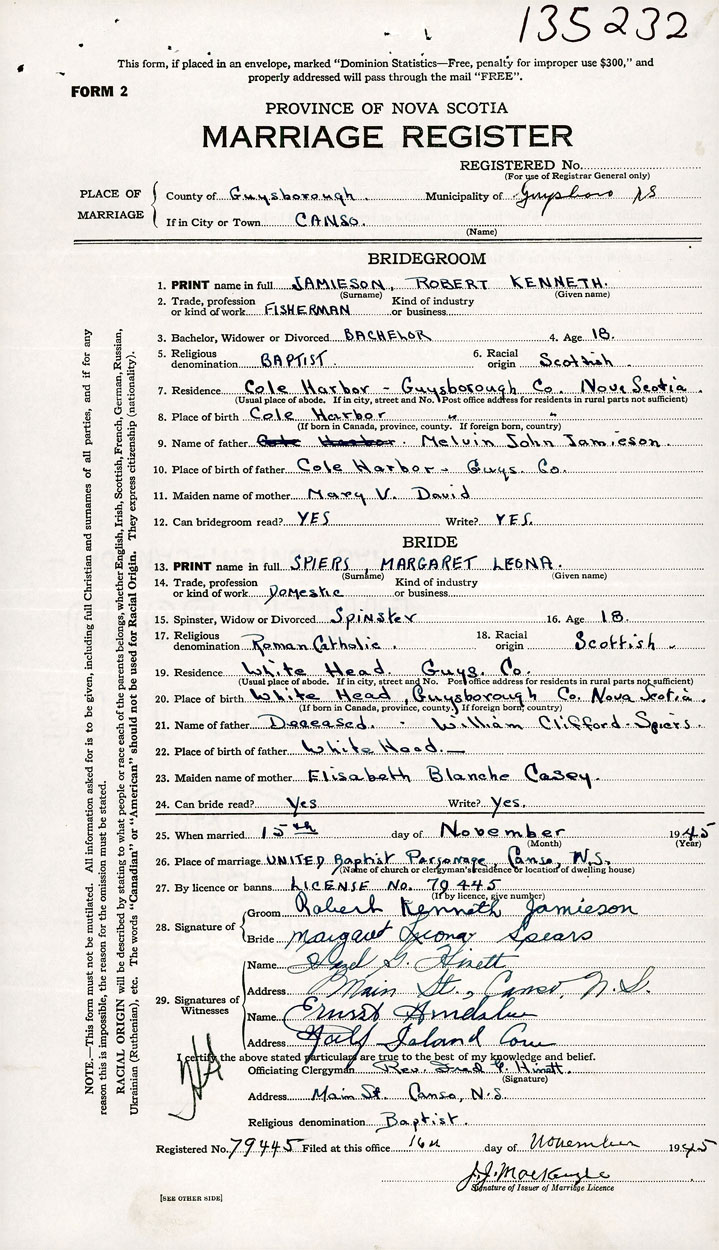 135232
This form, if placed in an envelope, marked "Dominion Statistics—Free, penalty for improper use $300," and
properly addressed will pass through the mail "FREE".
FORM 2
PROVINCE OF NOVA SCOTIA
MARRIAGE REGISTER
REGISTERED No.
(For use of Registrar General only)
PLACE OF MARRIAGE
County of Guysborough. Municipality of Guysboro
If in City or Town CANSO.
(Name)
BRIDEGROOM
1. PRINT name in full JAMIESON, ROBERT KENNETH.
(Surname) (Given name)
2. Trade, profession or kind of work FISHERMAN Kind of industry or business
3. Bachelor, Widower or Divorced BACHELOR 4. Age 18.
5. Religious denomination BAPTIST. 6. Racial origin Scottish.
7. Residence Cole Harbor - Guysborough Co. Nova Scotia.
(Usual place of abode. If in city, street and No. Post office address for residents in rural parts not sufficient)
8. Place of birth Cole Harbor " "
(If born in Canada, province, county. If foreign born, country)
9. Name of father Cole Harbor. Melvin John Jamieson.
10. Place of birth of father Cole Harbor - Guys. Co.
11. Maiden name of mother Mary V. David
12. Can bridegroom read? YES Write? YES.
BRIDE
13. PRINT name in full SPIERS, MARGARET LEONA.
(Surname) (Given name)
14. Trade, profession or kind of work Domestic Kind of industry or business
15. Spinster, Widow or Divorced Spinster 16. Age 18.
17. Religious denomination Roman Catholic. 18. Racial origin Scottish.
19. Residence White Head. Guys. Co.
(Usual place of abode. If in city, street and No. Post office address for residents in rural parts not sufficient)
20. Place of birth White Head, Guysborough Co. Nova Scotia.
(If born in Canada, province, county. If foreign born, country)
21. Name of father Deceased. - William Clifford Spiers
22. Place of birth of father White Head.—
23. Maiden name of mother Elisabeth Blanche Casey.
24. Can bride read? Yes Write? Yes.
25. When married 15th day of November 1945
(Month) (Year)
26. Place of marriage UNITED Baptist Parsonage, Canso, N.S.
(Name of church or clergyman's residence or location of dwelling house)
27. By licence or banns LICENSE No. 79445
(If by licence, give number)
28. Signature of
Groom Robert Kenneth Jamieson
Bride Margaret Leona Spears
29. Signatures of Witnesses
Name Hazel G. Hinett
Address Main St., Canso, N.S.
Name Ernest
Address Half Island Cove
I certify the above stated particulars are true to the best of my knowledge and belief.
Officiating Clergyman Rev. Fred C. Hinett.
(Signature)
Address Main St. Canso, N.S.
Religious denomination Baptist.
Registered No. 79445 Filed at this office 16th day of November 1945
MacKenzie
Signature of Issuer of Marriage Licence
[SEE OTHER SIDE]
NOTE.—This form must not be mutilated. All information asked for is to be given, including full Christian and surnames of all parties, and if for any
reason this is impossible, the reason for the omission must be stated.
RACIAL ORIGIN will be described by stating to what people or race each of the parents belongs, whether English, Irish, Scottish, French, German, Russian,
Ukrainian (Ruthenian), etc. The words "Canadian" or "American" should not be used for Racial Origin. They express citizenship (nationality).